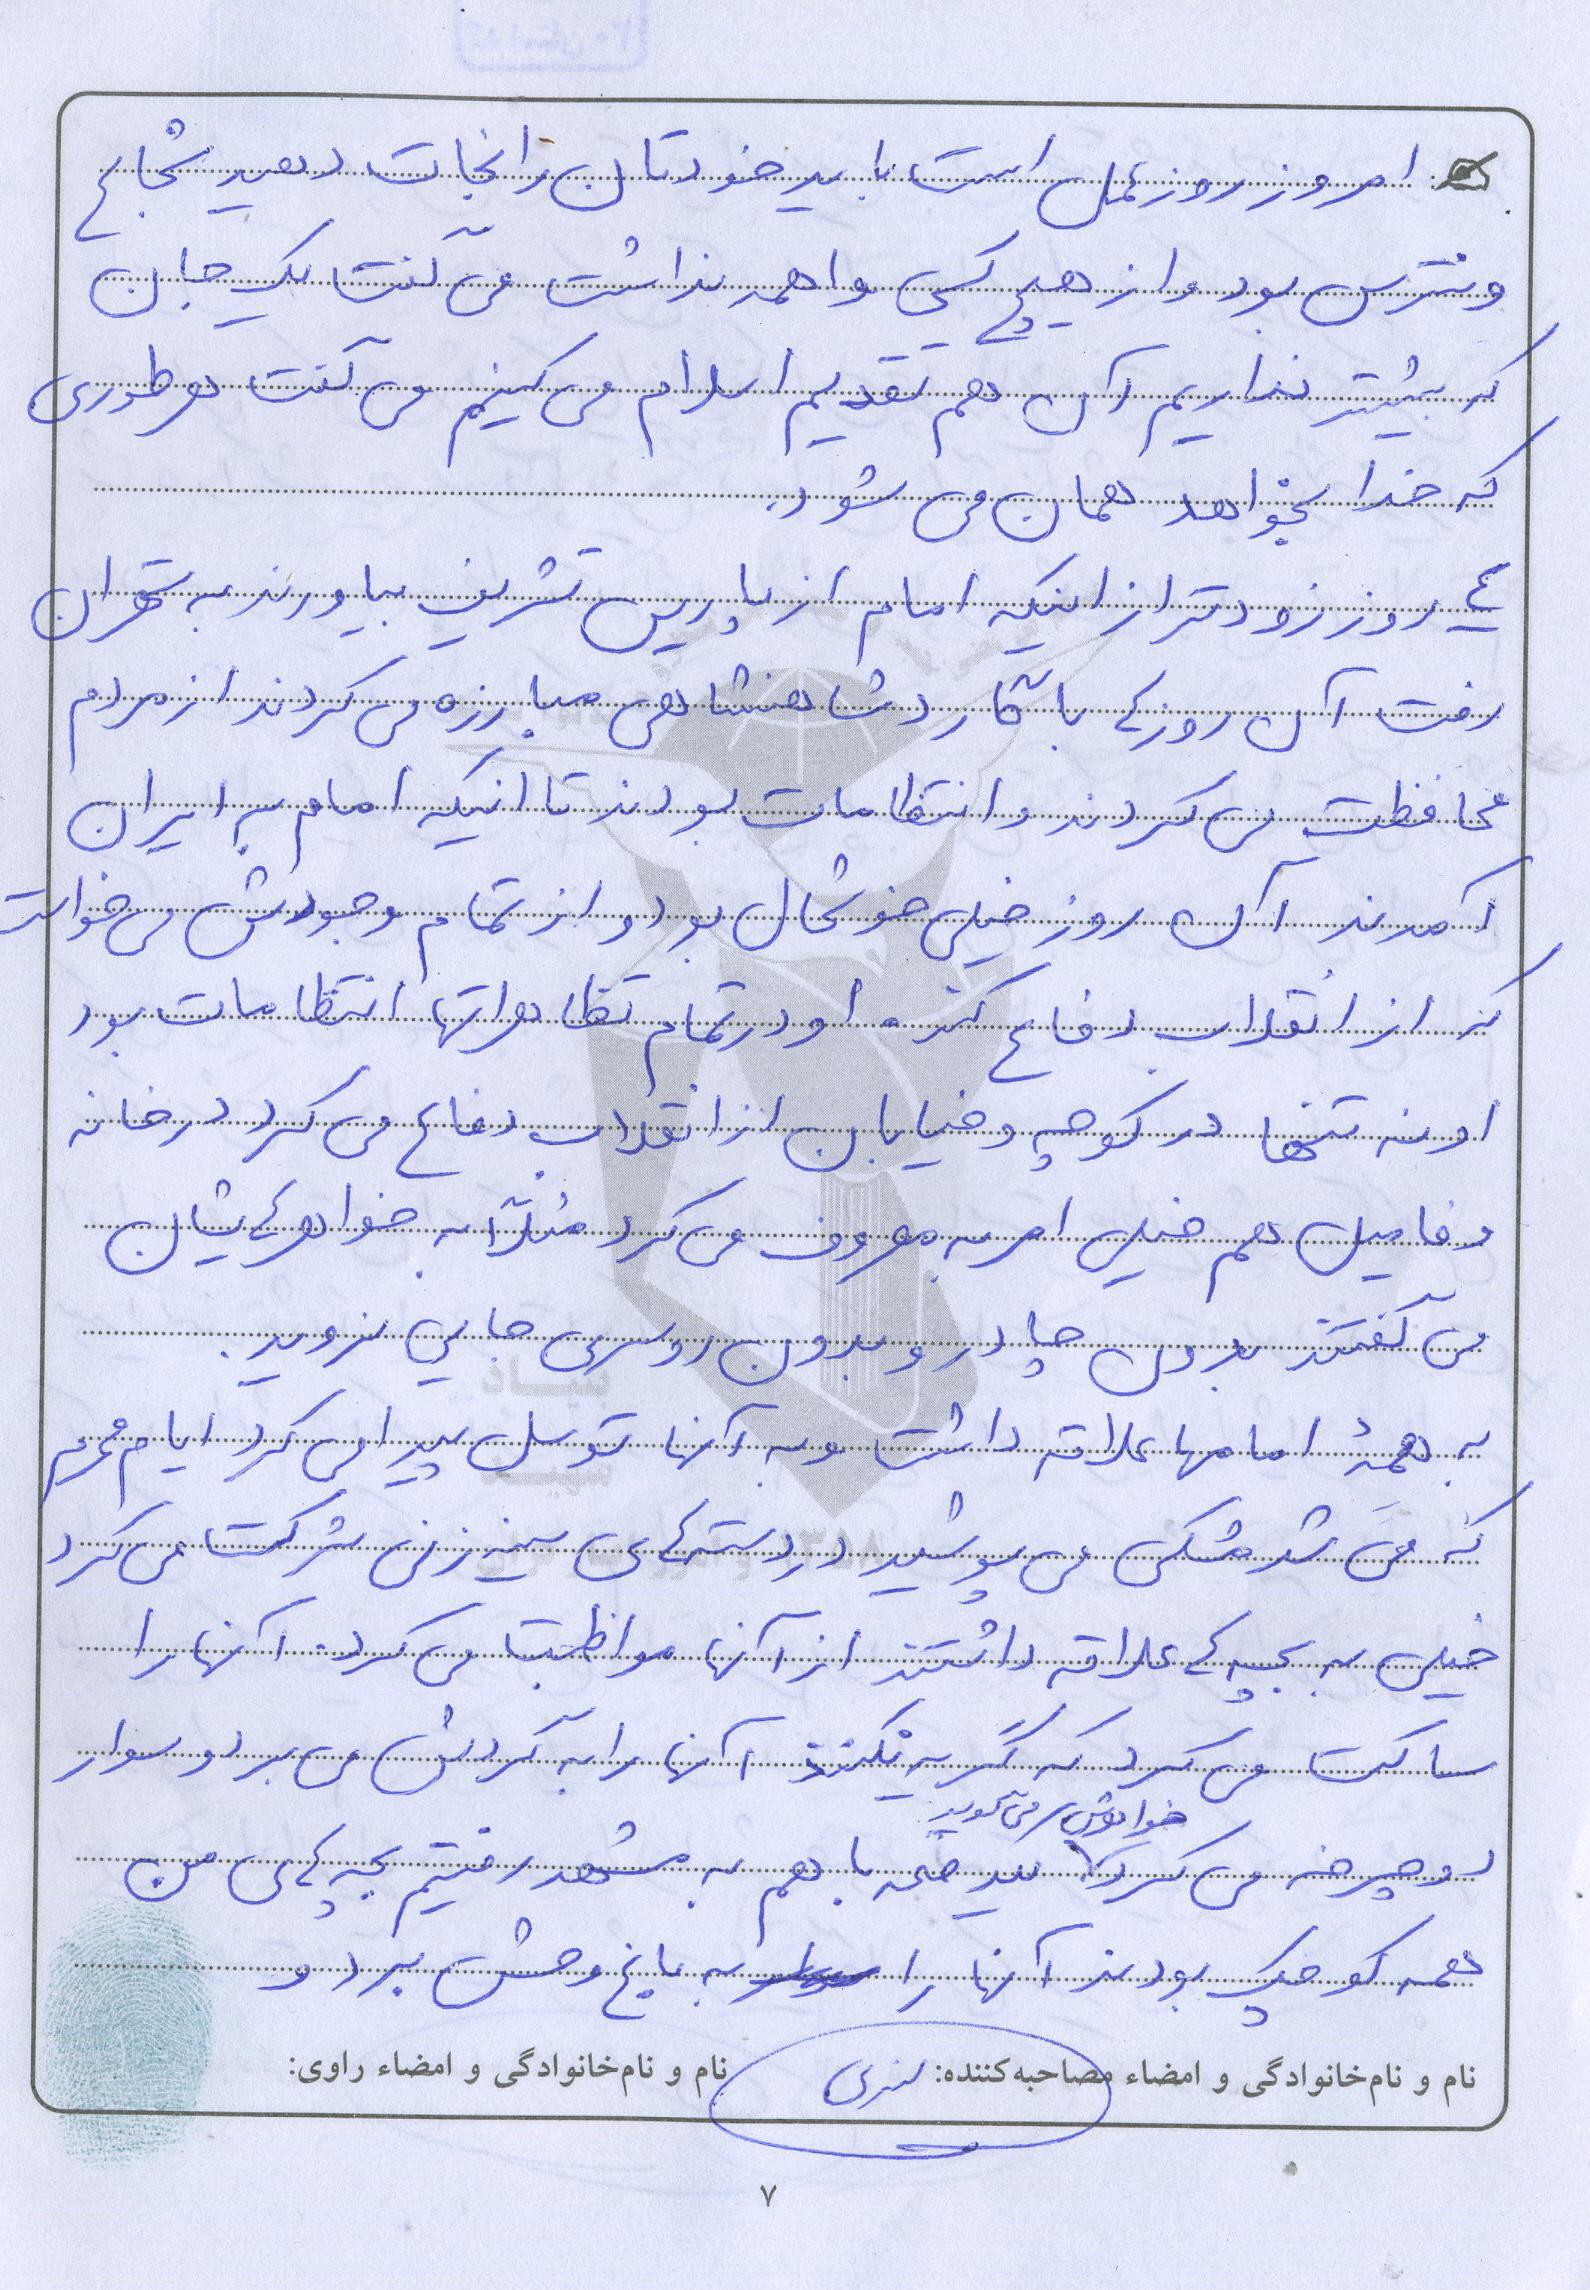 امروز روز عمل است باید خودتان را نجات دهید شجاع
و نترس بود و از هیچ کسی واهمه نداشت می گفت یک جان
که بیشتر نداریم آن هم تقدیم اسلام می کنیم می گفت هر طوری
که خدا بخواهد همان می شود.
۴ روز زودتر از اینکه امام از پاریس تشریف بیاورند به تهران
رفت آن روزها با گارد شاهنشاهی مبارزه می کردند از مردم
محافظت می کردند و انتظامات بودند تا اینکه امام به ایران
آمدند آن روز خیلی خوشحال بود و از تمام وجودش می خواست
که از انقلاب دفاع کند. او در تمام تظاهراتها انتظامات بود
او نه تنها در کوچه و خیابان از انقلاب دفاع می کرد در خانه
و فامیل هم خیلی امر به معروف می کرد مثلاً به خواهرهایشان
می گفتند بدون چادر و بدون روسری جایی نروید.
به همهٔ امامها علاقه داشت و به آنها توسل پیدا می کرد ایام محرم
که می شد مشکی می پوشید در دسته های سینه زنی شرکت می کرد
خیلی به بچه ها علاقه داشتند از آنها مواظبت می کرد. آنها را
ساکت می کرد که گریه نکنند آنها را به گردش می برد و سوار
خواهرش می گوید
دوچرخه می کرد با هم به مشهد رفتیم بچه های من
همه کوچک بودند آنها را به باغ وحش برد و
نام و نام‌خانوادگی و امضاء مصاحبه‌کننده: نام و نام‌خانوادگی و امضاء راوی:
۷